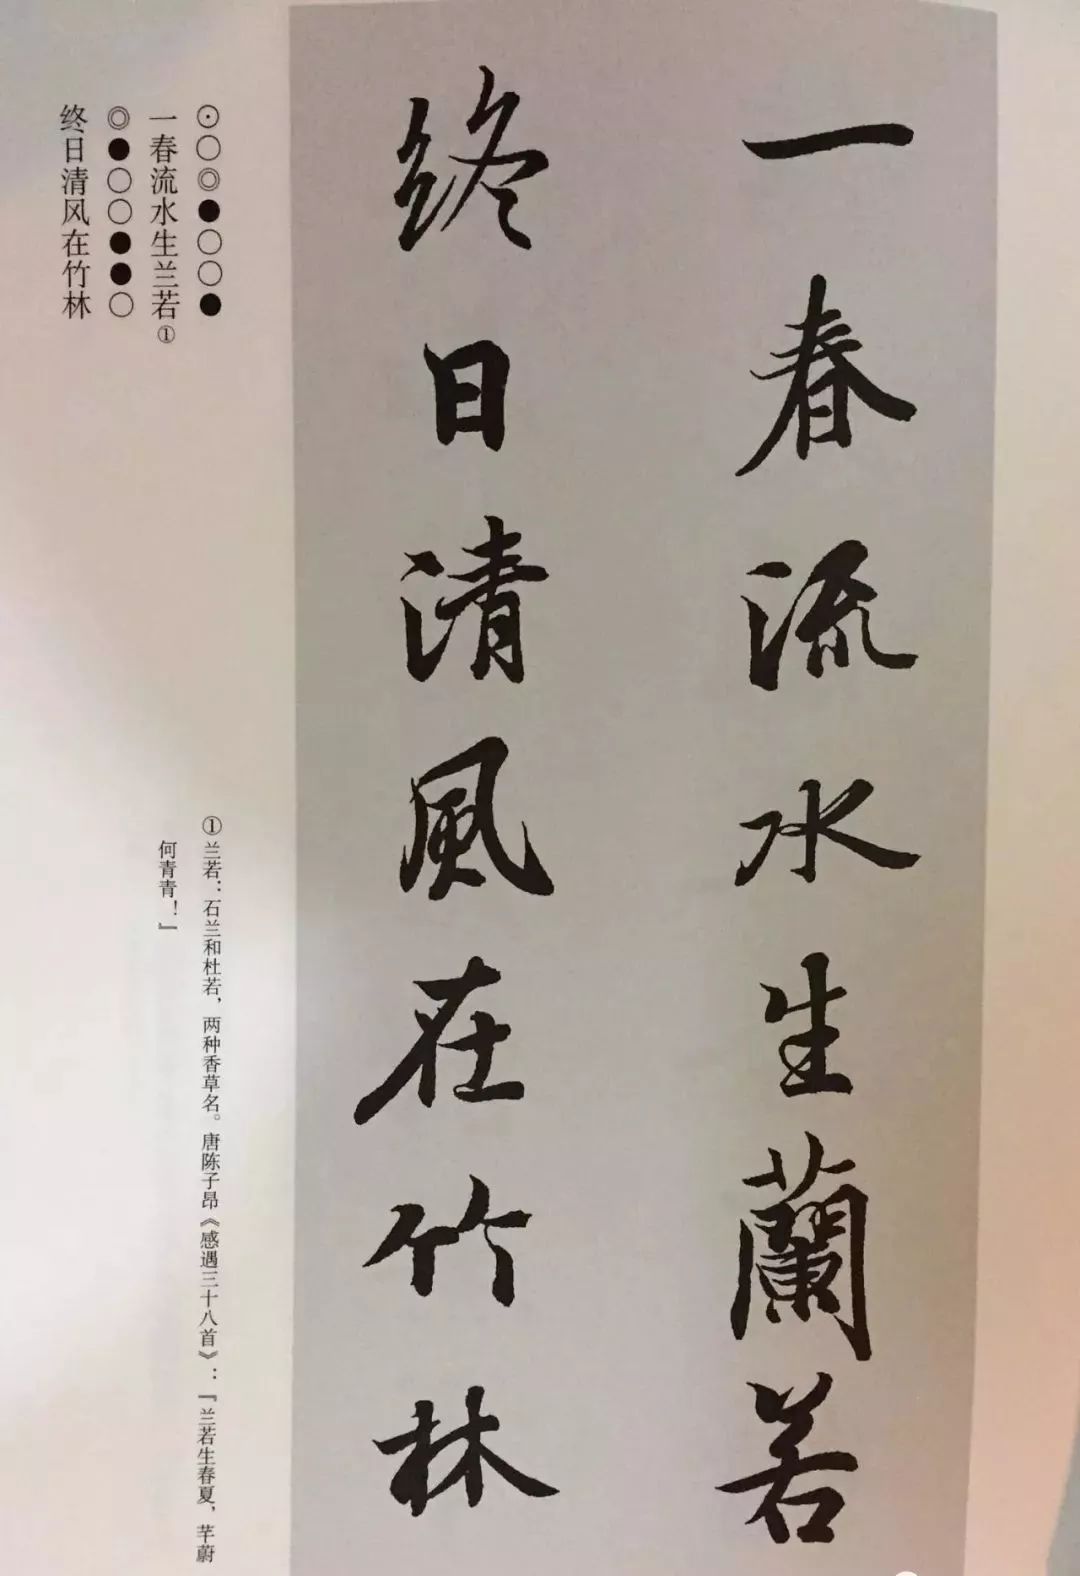 一春流水生蘭若
终日清風在竹林
⊙○◎●○○●
一春流水生兰若①
◎●○○●●○
终日清风在竹林
①兰若：石兰和杜若，两种香草名。唐陈子昂《感遇三十八首》：『兰若生春夏，芊蔚
何青青！』